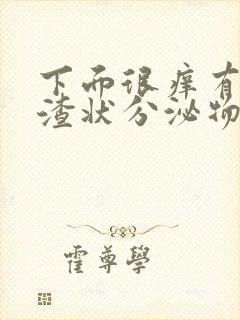 下面很痒有
渣状分泌物
霍尊學